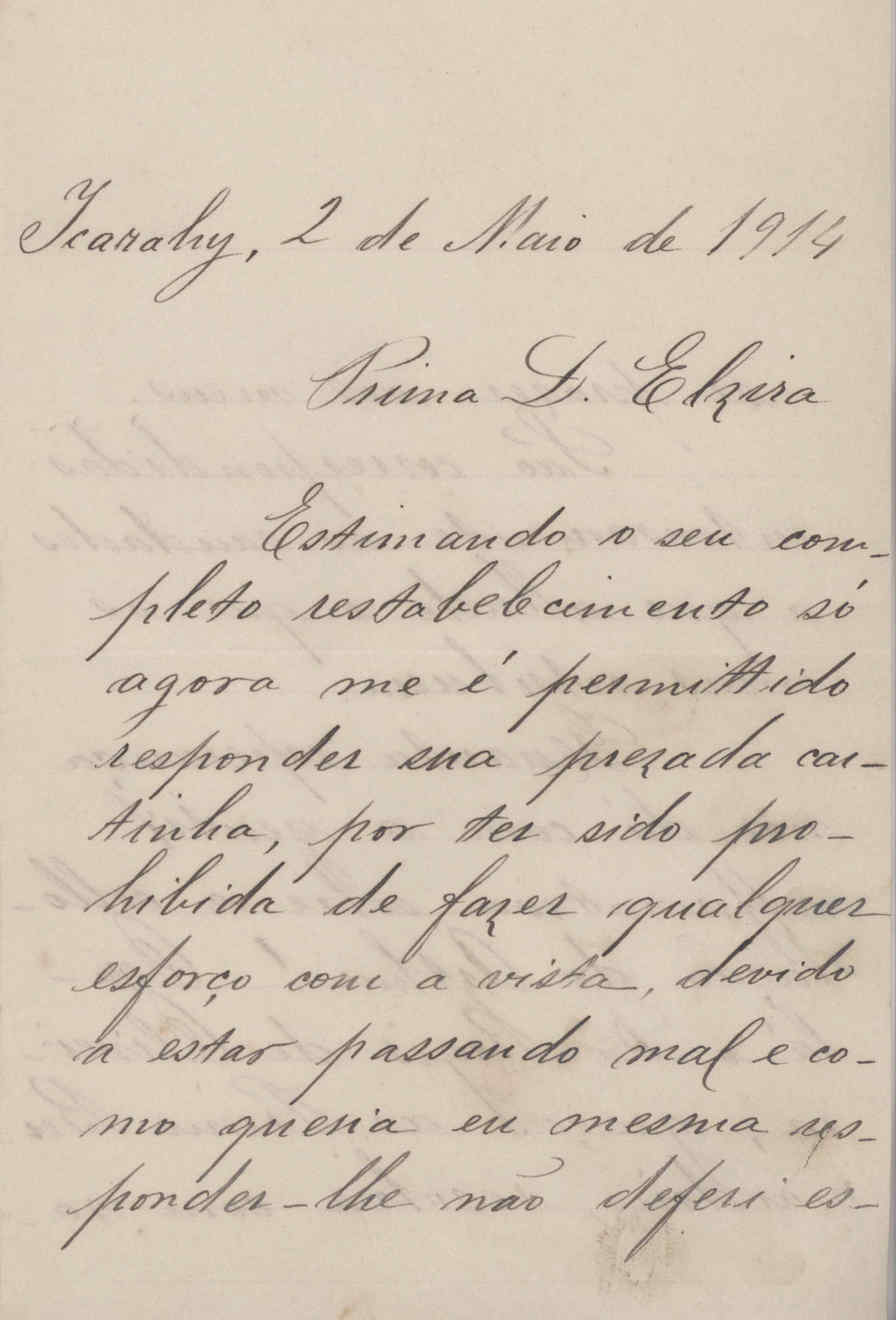 Icarahy, 2 de Maio de 1914
Prima D. Elzira
Estimando o seu com-
pleto restabelecimento só
agora me é permittido
responder sua prezada car-
tinha, por ter sido pro-
hibida de fazer qualquer
esforço com a vista, devido
a estar passando mal e co-
mo queria eu mesma res-
ponder-lhe não deferi es-